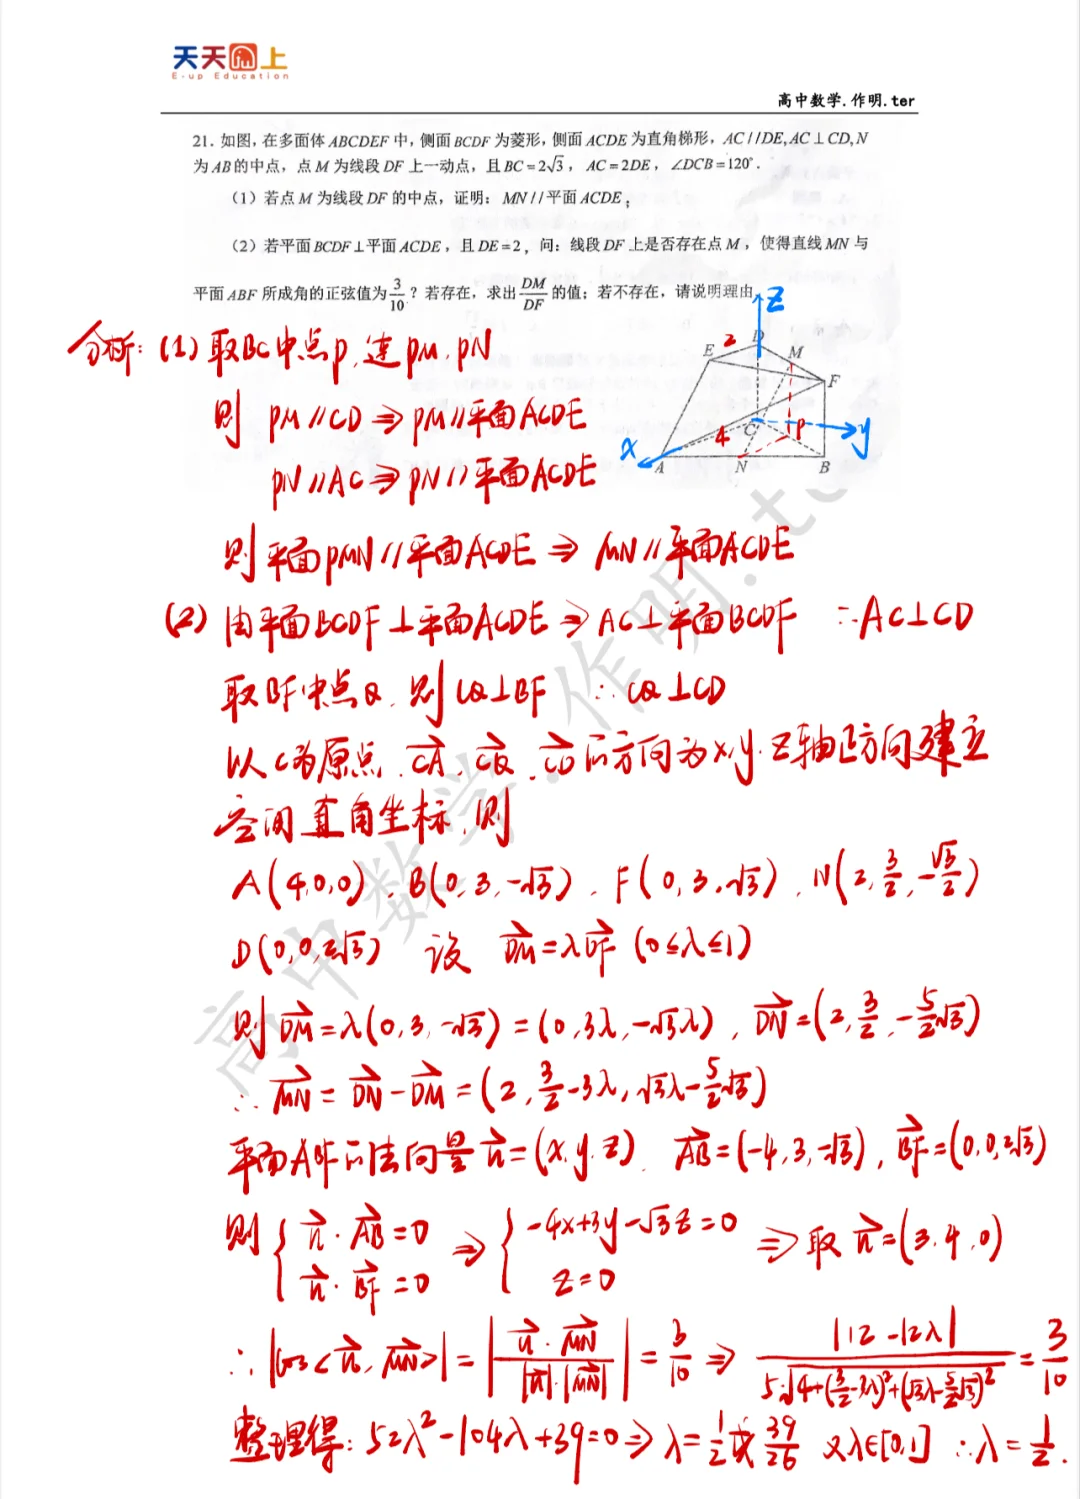 天天向上
E-up Education
高中数学.作明.ter
21. 如图, 在多面体 ABCDEF 中, 侧面 BCDF 为菱形, 侧面 ACDE 为直角梯形, AC//DE, AC⊥CD, N
为 AB 的中点, 点 M 为线段 DF 上一动点, 且 BC=2√3, AC=2DE, ∠DCB=120°.
(1) 若点 M 为线段 DF 的中点, 证明: MN//平面 ACDE;
(2) 若平面 BCDF⊥平面 ACDE, 且 DE=2, 问: 线段 DF 上是否存在点 M, 使得直线 MN 与
平面 ABF 所成角的正弦值为 3/10? 若存在, 求出 DM/DF 的值; 若不存在, 请说明理由.
z
2 D
E M
F
C y
4 P
x
A N B
分析: (1) 取BC中点P, 连PM, PN
则 PM//CD ⇒ PM//平面ACDE
PN//AC ⇒ PN//平面ACDE
则平面PMN//平面ACDE ⇒ MN//平面ACDE
(2) 由平面BCDF⊥平面ACDE ⇒ AC⊥平面BCDF ∴AC⊥CD
取BF中点Q, 则CQ⊥BF ∴CQ⊥CD
以C为原点, CA→, CQ→, CD→的方向为x.y.z轴正方向建立
空间直角坐标, 则
A(4,0,0), B(0,3,-√3), F(0,3,√3), N(2,3/2,-√3/2)
D(0,0,2√3) 设 DM→=λDF→ (0≤λ≤1)
则DM→=λ(0,3,-√3)=(0,3λ,-√3λ), DN→=(2,3/2,-5/2√3)
∴MN→=DN→-DM→=(2,3/2-3λ,√3λ-5/2√3)
平面ABF的法向量n→=(x,y,z), AB→=(-4,3,-√3), BF→=(0,0,2√3)
则 { n→·AB→=0 n→·BF→=0 ⇒ { -4x+3y-√3z=0 z=0 ⇒ 取n→=(3,4,0)
∴|cos<n→,MN→>|=|n→·MN→/|n→|·|MN→||=3/10 ⇒ |12-12λ|/5·√4+(3/2-3λ)²+(√3λ-5/2√3)²=3/10
整理得: 52λ²-104λ+39=0 ⇒ λ=1/2或39/26 又λ∈[0,1] ∴λ=1/2.
高中数学.作明.ter